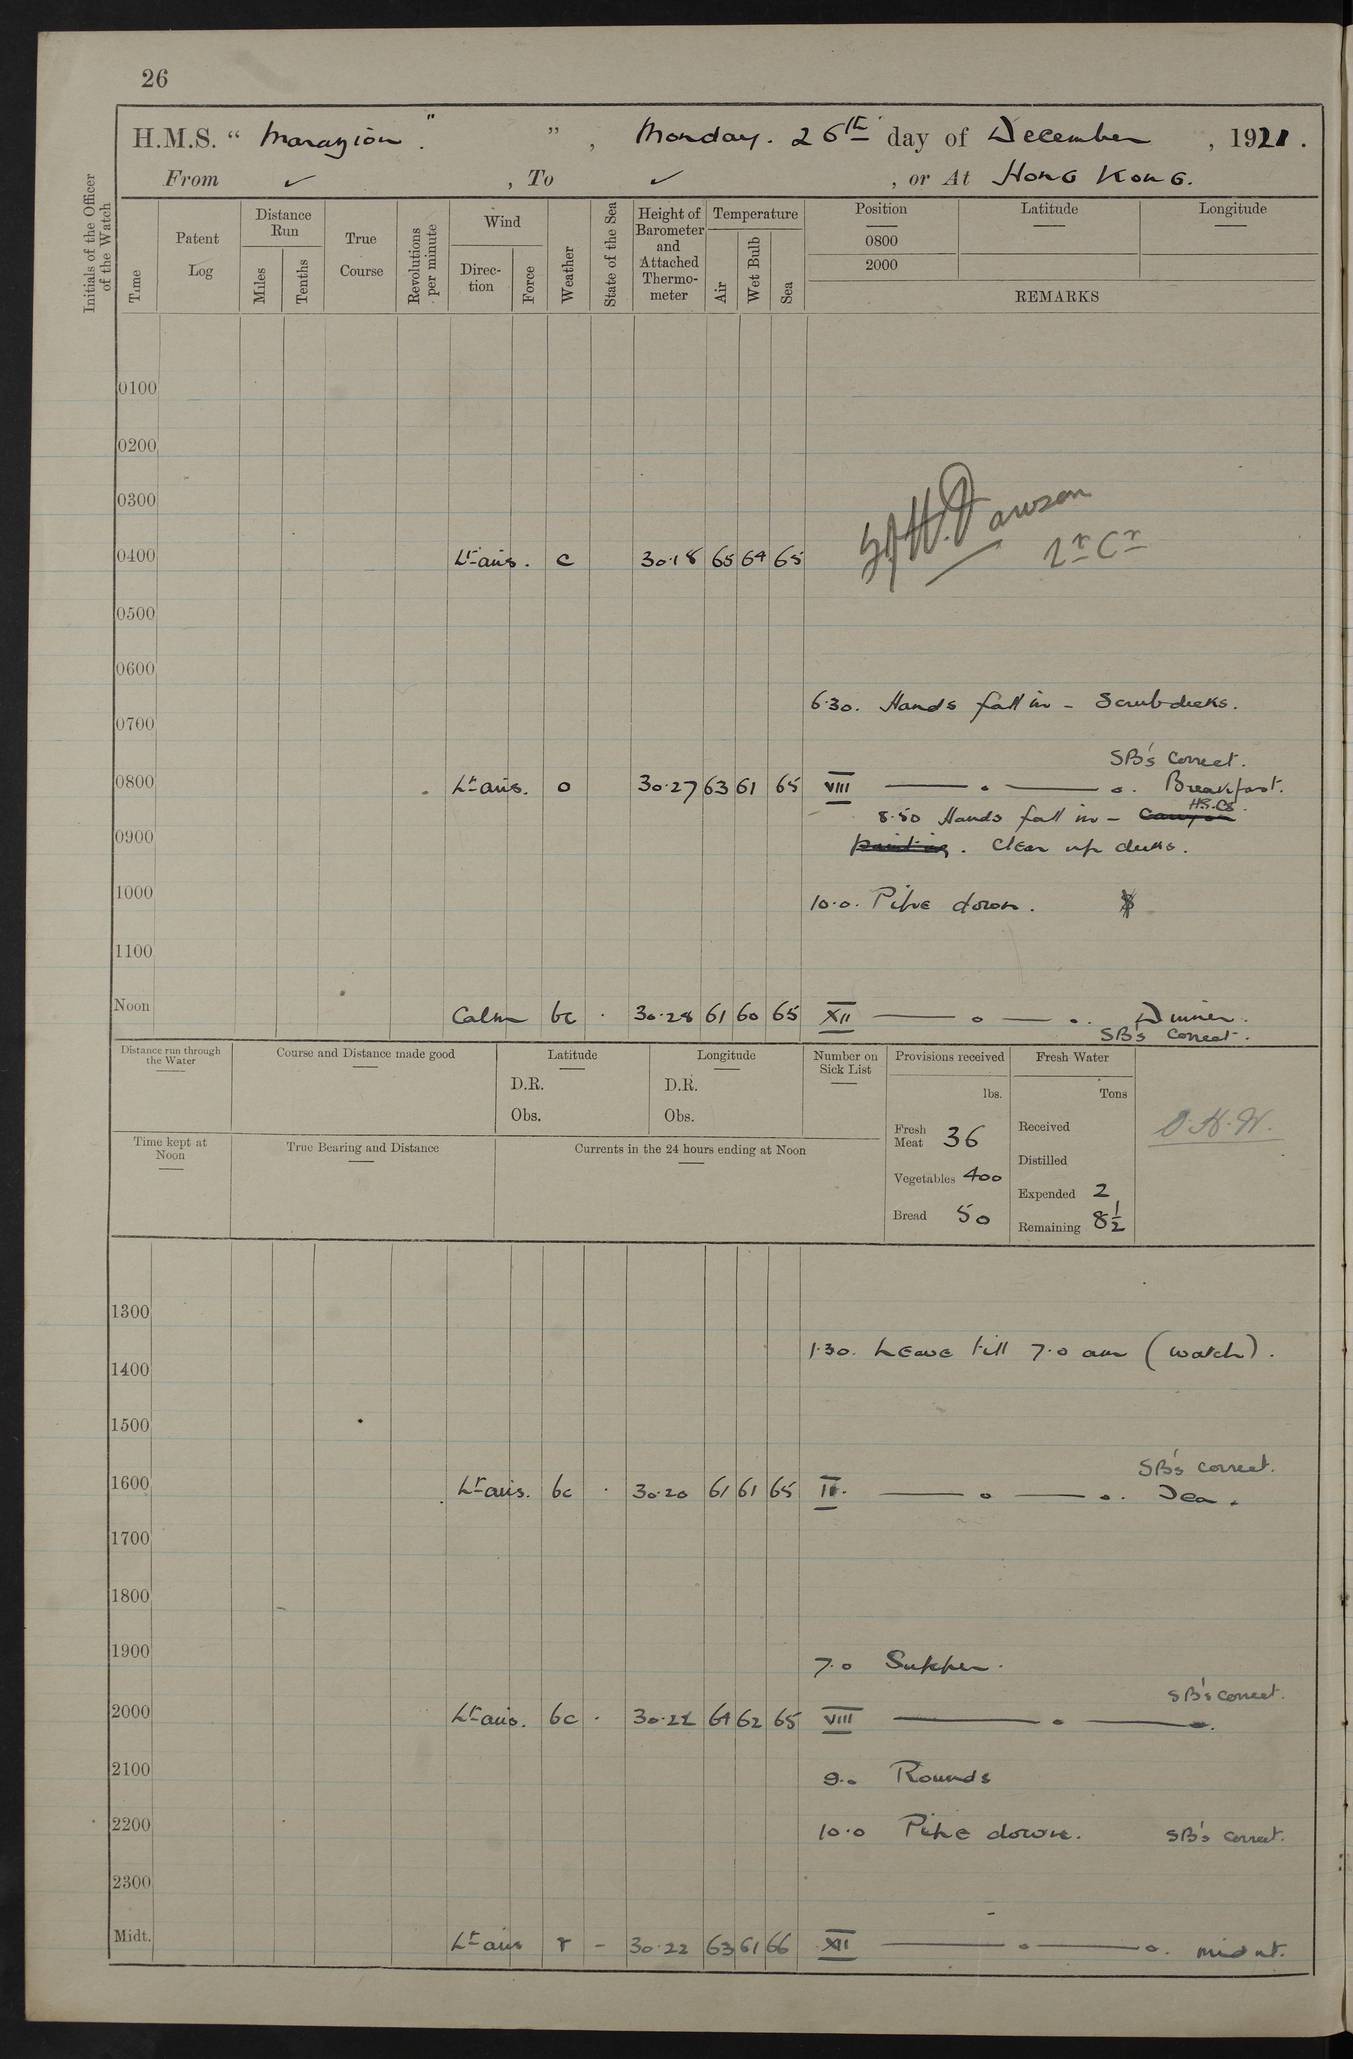 26
H.M.S. “ Marazion. ” ” , Monday. 26th day of December , 1921 .
From ✓ , To ✓ , or At Hong Kong.
Initials of the Officer of the Watch
Time
Patent Log
Distance Run
Miles
Tenths
True Course
Revolutions per minute
Wind
Direc-tion
Force
Weather
State of the Sea
Height of Barometer and Attached Thermo-meter
Temperature
Air
Wet Bulb
Sea
Position Latitude Longitude
0800
2000
REMARKS
0100
0200
0300
0400 Lt airs. c 30.18 65 64 65
Dawson
Lr Cr
0500
0600
6.30. Hands fall in - Scrub decks.
0700
SB's correct.
0800 Lt airs. o 30.27 63 61 65 VIII ——— o ——— o. Breakfast.
8.50 Hands fall in - H.S.Cs.
0900 painting. Clear up decks.
1000 10.0. Pipe down.
1100
Noon Calm bc . 30.28 61 60 65 XII ——— o ——— o. Dinner.
SB's correct.
Distance run through the Water
Course and Distance made good
Latitude
D.R.
Obs.
Longitude
D.R.
Obs.
Number on Sick List
Provisions received
lbs.
Fresh Meat 36
Vegetables 400
Bread 50
Fresh Water
Tons
Received
Distilled
Expended 2
Remaining 8½
Time kept at Noon
True Bearing and Distance
Currents in the 24 hours ending at Noon
1300
1.30. Leave till 7.0 am (watch).
1400
1500
SB's correct.
1600 Lt airs. bc . 30.20 61 61 65 ——— o ——— o. Tea.
1700
1800
1900 7.0 Supper.
SB's correct.
2000 Lt airs. bc . 30.22 64 62 65 VIII ——— o ——— o.
2100 9.0 Rounds
2200 10.0 Pipe down. SB's correct.
2300
Midt. Lt airs r - 30.22 63 61 66 XII ——— o ——— o. midnt.